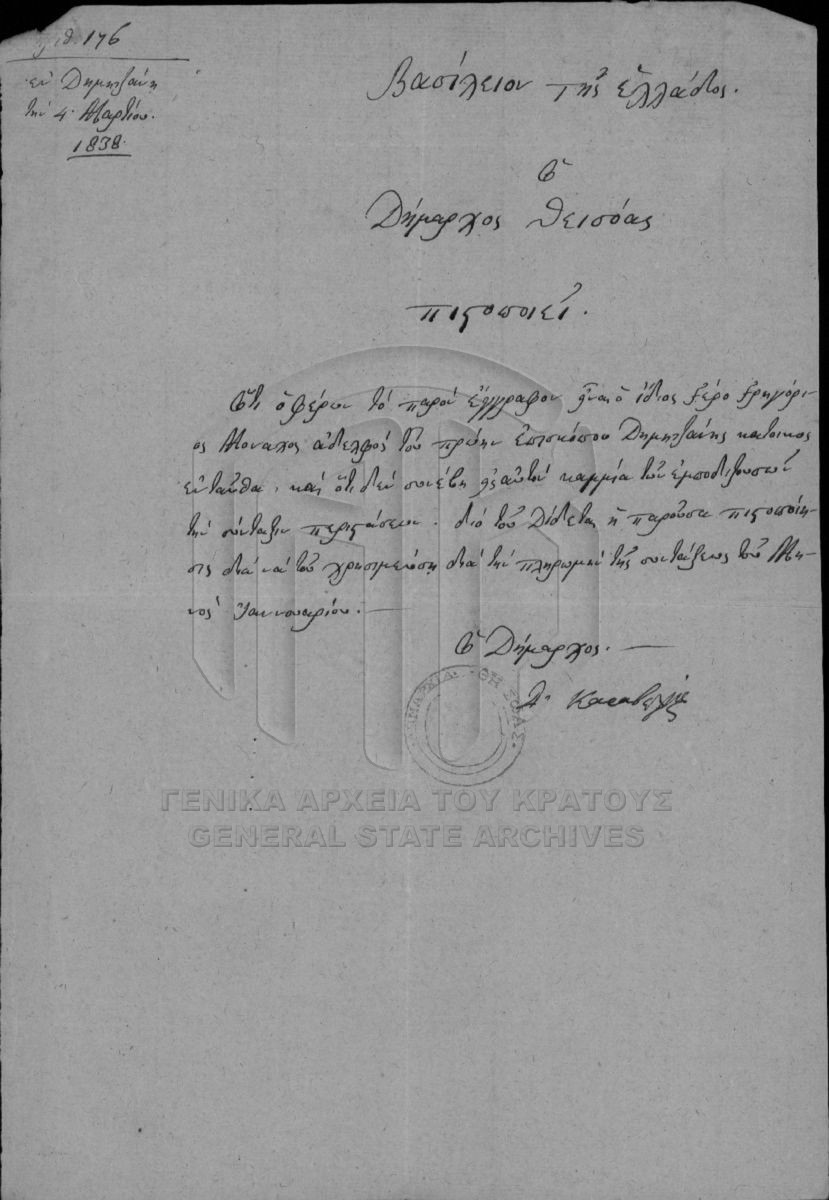 ἀριθ. 176
ἐν Δημητζάνῃ
τὴν 4. Μαρτίου.
1838.
Βασίλειον τῆς Ἑλλάδος.
Ὁ
Δήμαρχος Θεισόας
πιστοποιεῖ.
Ὅτι ὁ φέρων τὸ παρὸν ἔγγραφον εἶναι ὁ ἴδιος Γέρο Γρηγόρι-
ος Μοναχὸς ἀδελφὸς τοῦ πρώην Ἐπισκόπου Δημητζάνης κάτοικος
ἐνταῦθα, καὶ ὅτι δὲν συνέβη εἰς αὐτὸν καμμία τῶν ἐμποδιζουσῶν
τὴν σύνταξιν περιστάσεων. διὸ τοῦ δίδεται ἡ παροῦσα πιστοποίη-
σις διὰ νὰ τοῦ χρησιμεύσῃ διὰ τὴν πληρωμὴν τῆς συντάξεως τοῦ Μη-
νὸς Ἰαννουαρίου.
Ὁ Δήμαρχος.
ΔΗΜΑΡΧΙΑ ΘΗΣΟΑΣ.
ΓΕΝΙΚΑ ΑΡΧΕΙΑ ΤΟΥ ΚΡΑΤΟΥΣ
GENERAL STATE ARCHIVES